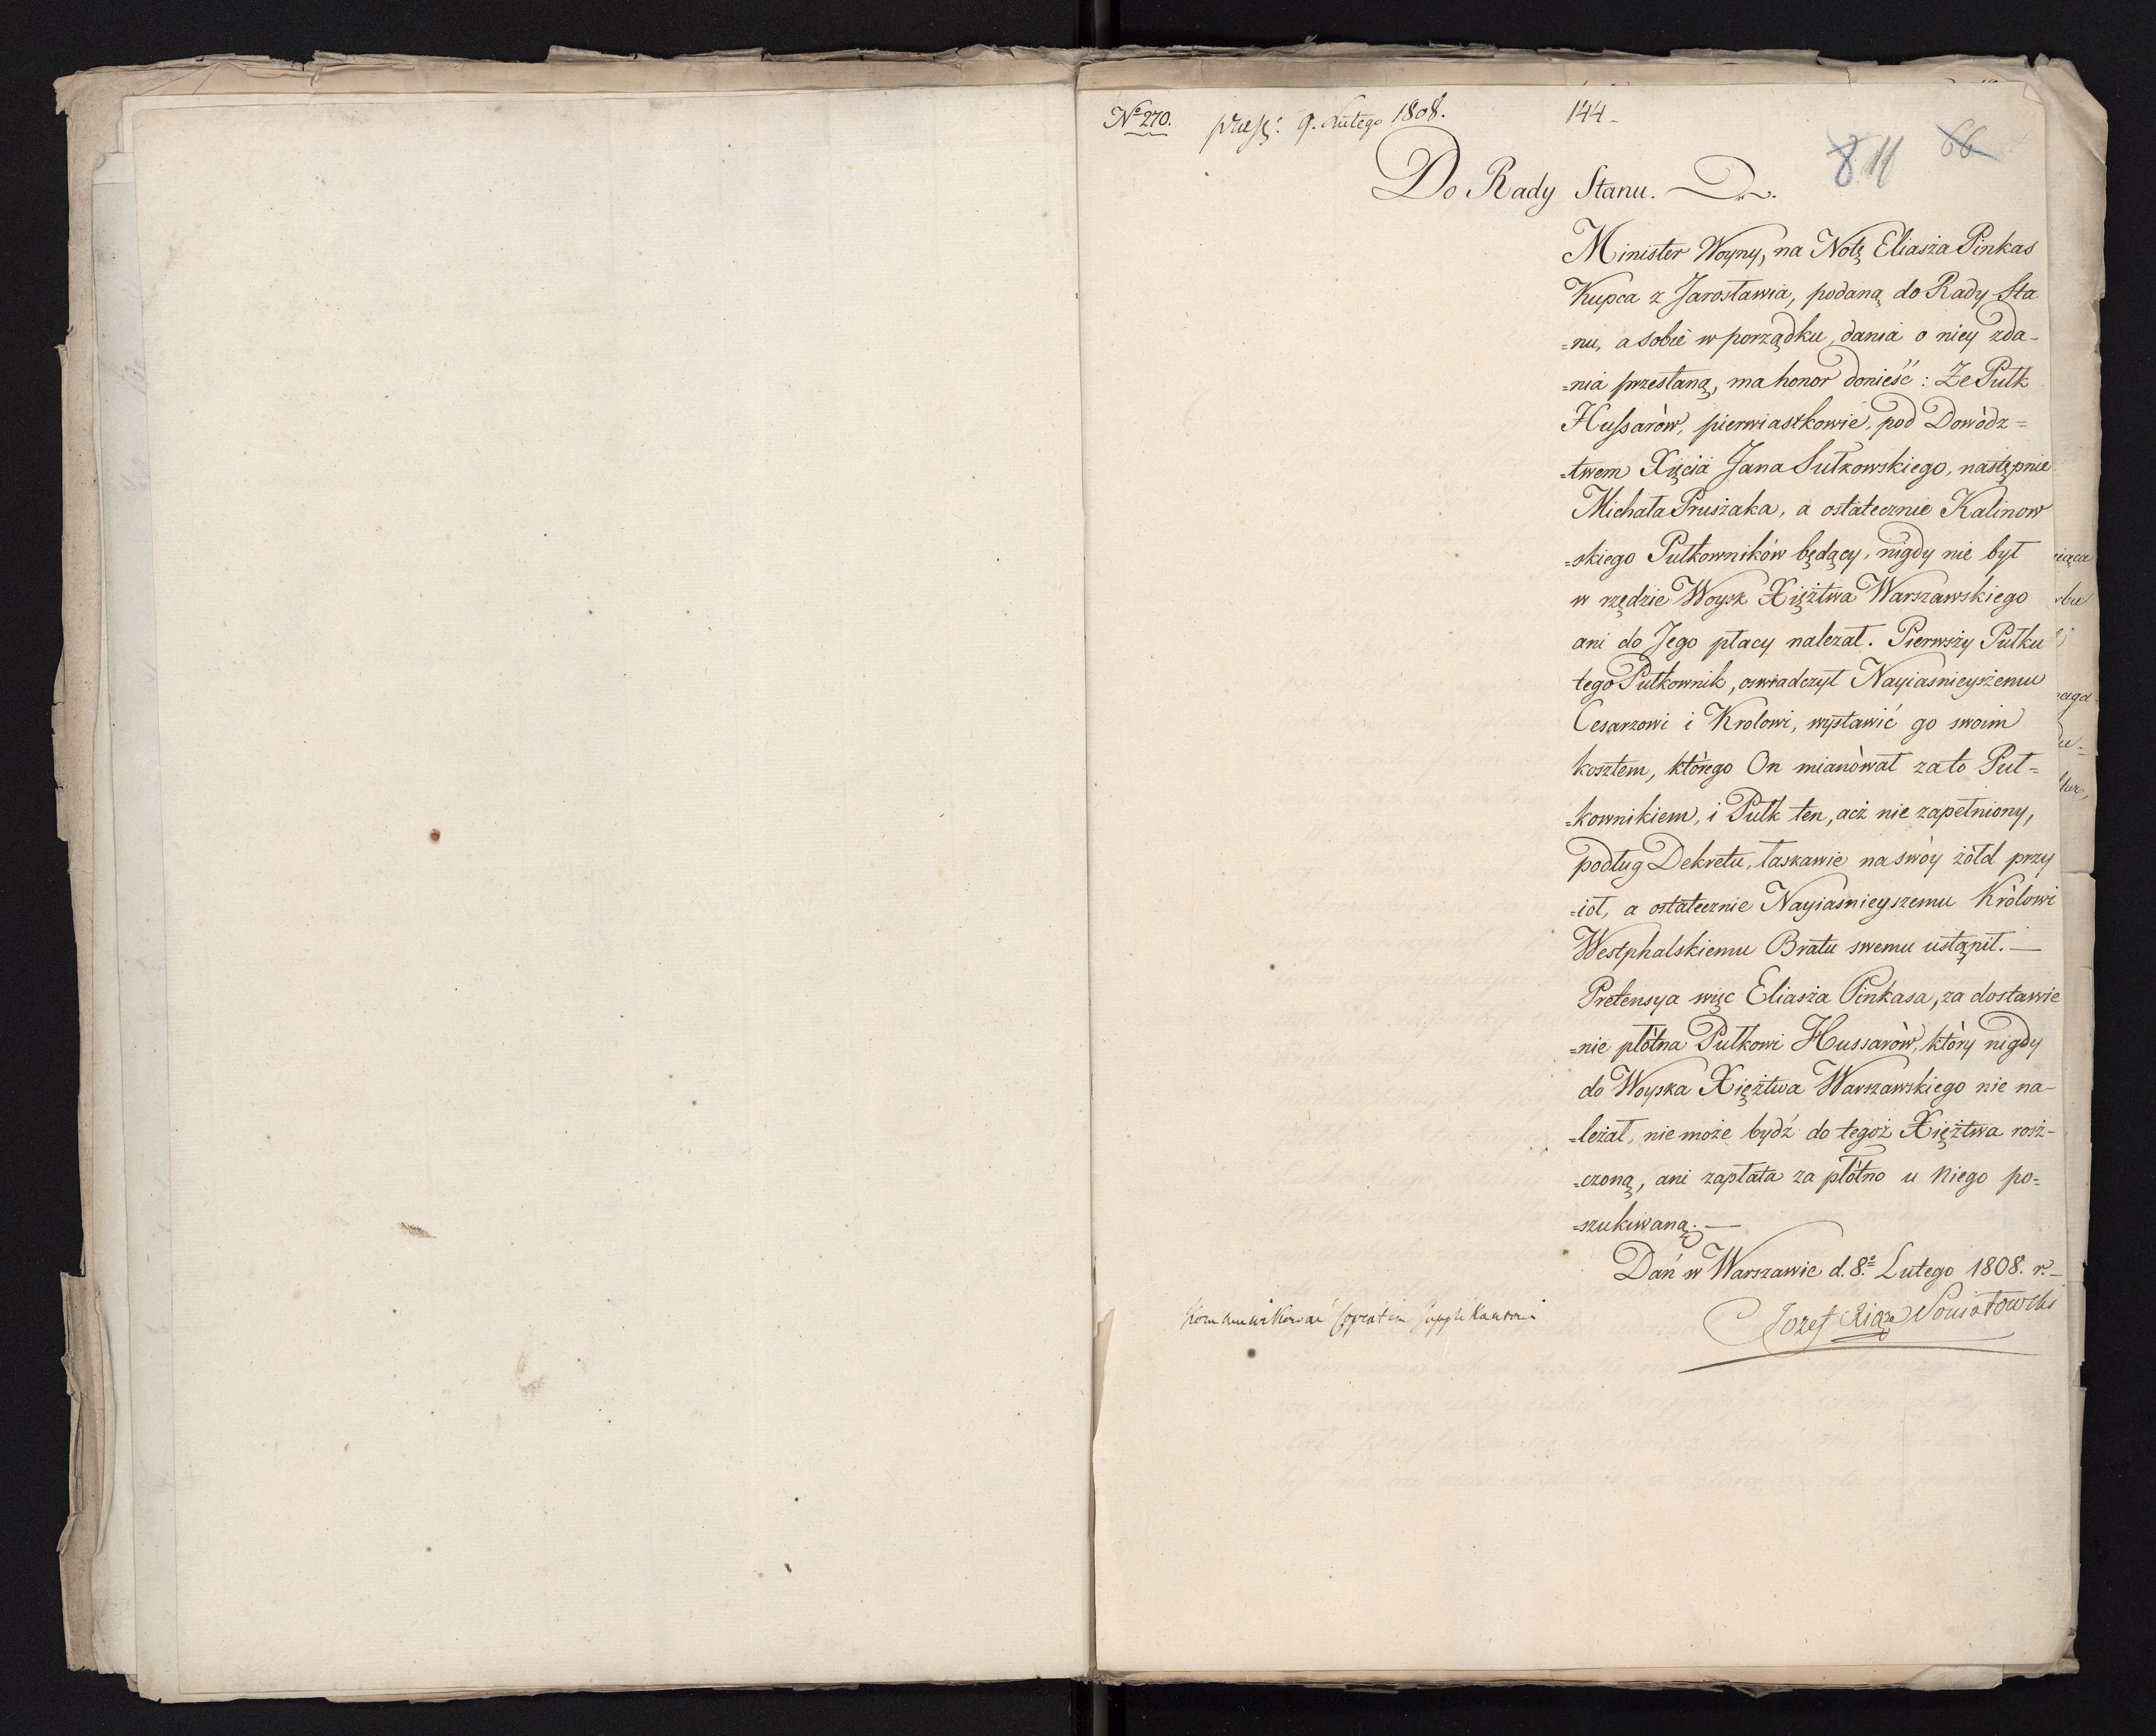 No 270. præs: 9. Lutego 1808. 144
8 11 66
Do Rady Stanu.
Minister Woyny, na Notę Eliasza Pinkas
Kupca z Jarosławia, podaną do Rady Sta
=nu, a sobie w porządku, dania o niey zda-
=nia przesłaną, ma honor donieść: Ze Pułk
Hussarów, pierwiastkowie, pod Dowódz=
=twem Xięcia Jana Sułkowskiego, następnie
Michała Pruszaka, a ostatecznie Kalinow
=skiego Pułkowników będący, nigdy nie był
w rzędzie Woysk Xięztwa Warszawskiego
ani do Jego płacy nalezał. Pierwszy Pułku
tego Pułkownik, oswiadczył Nayiasnieyszemu
Cesarzowi i Krolowi, wystawić go swoim
kosztem, którego On mianował za to Puł=
=kownikiem, i Pułk ten, acz nie zapełniony,
podług Dekretu, łaskawie na swóy żołd przy
=ioł, a ostatecznie Nayiasnieyszemu Królowi
Westphalskiemu Bratu swemu ustąpił. —
Pretensya więc Eliasza Pinkasa, za dostawie
=nie płótna Pułkowi Hussarów, który nigdy
do Woyska Xięztwa Warszawskiego nie na-
=leżał, nie może bydź do tegoż Xięztwa rosz-
=czoną, ani zapłata za płótno u niego po=
=szukiwaną. —
Dań w Warszawie d. 8. Lutego 1808. r. —
Jozef Xiąże Poniatowski
Kommunikować supplikantowi